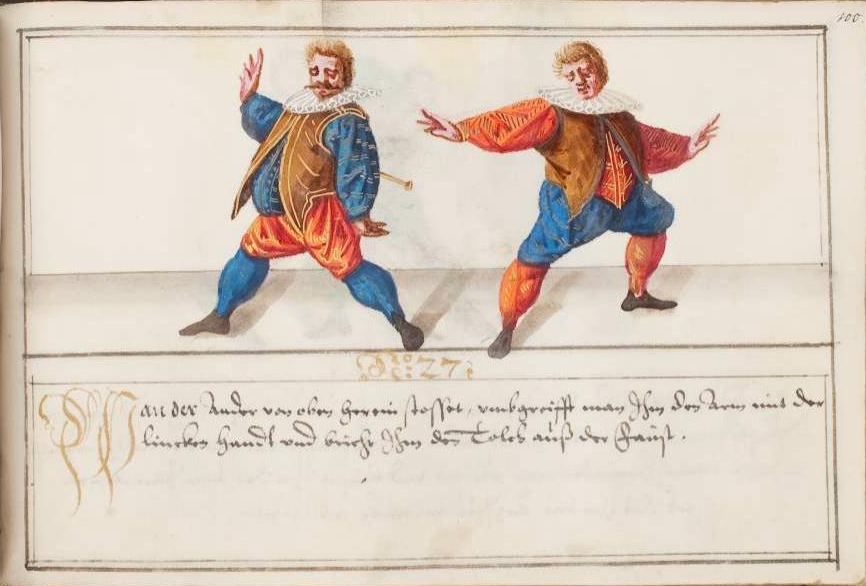 100.
No: 27.
Wan der Ander von oben herein stosset, vmbgreifft man Ihm den Arm mit der
lincken handt vnd bricht Ihm den Tolch auß der Faust.